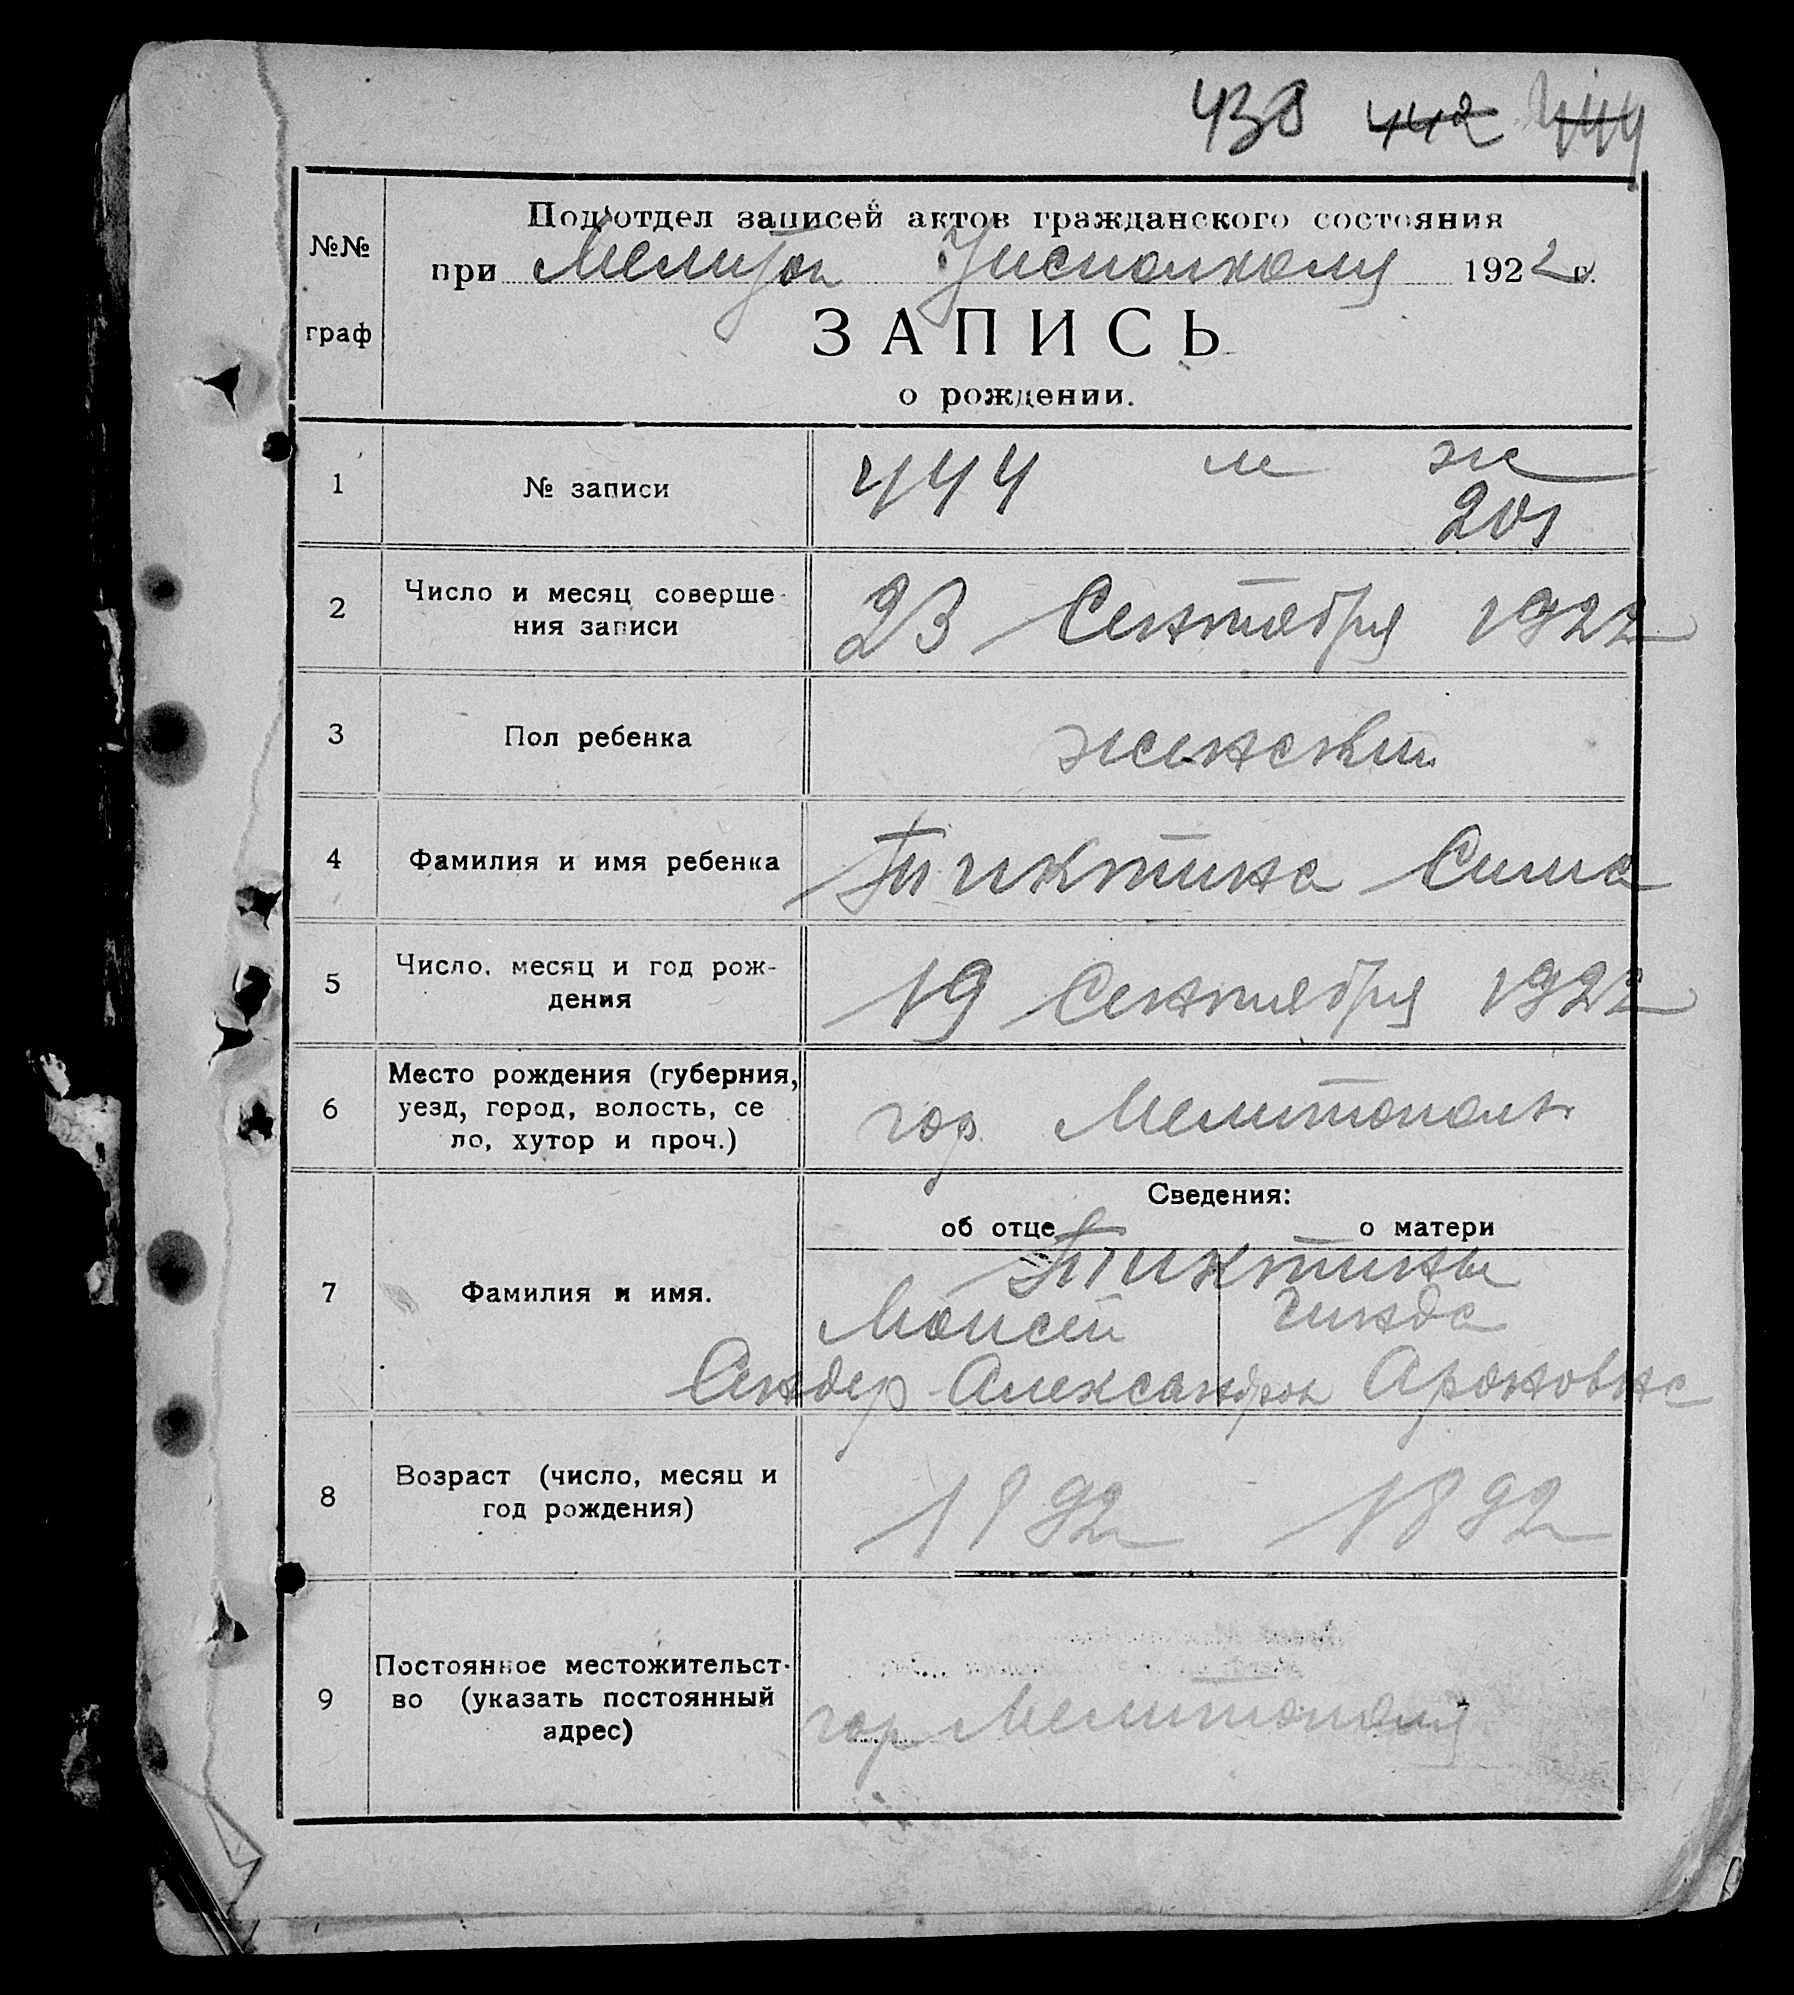 438 442 444
№№
граф
Подотдел записей актов гражданского состояния
при Мелитоп Уисполкому 1922 г.
ЗАПИСЬ
о рождении.
1 № записи 444 м ж
201
2 Число и месяц соверше-
ния записи 23 Сентября 1922
3 Пол ребенка женский
4 Фамилия и имя ребенка Тиктина Сима
5 Число, месяц и год рож-
дения 19 Сентября 1922
6 Место рождения (губерния,
уезд, город, волость, се
ло, хутор и проч.) гор. Мелитополь
Сведения:
об отце о матери
7 Фамилия и имя. Тиктины
Моисей Гинда
Сендер-Александров Ароновна
8 Возраст (число, месяц и
год рождения) 1892 1892
9 Постоянное местожительст-
во (указать постоянный
адрес) гор Мелитополя